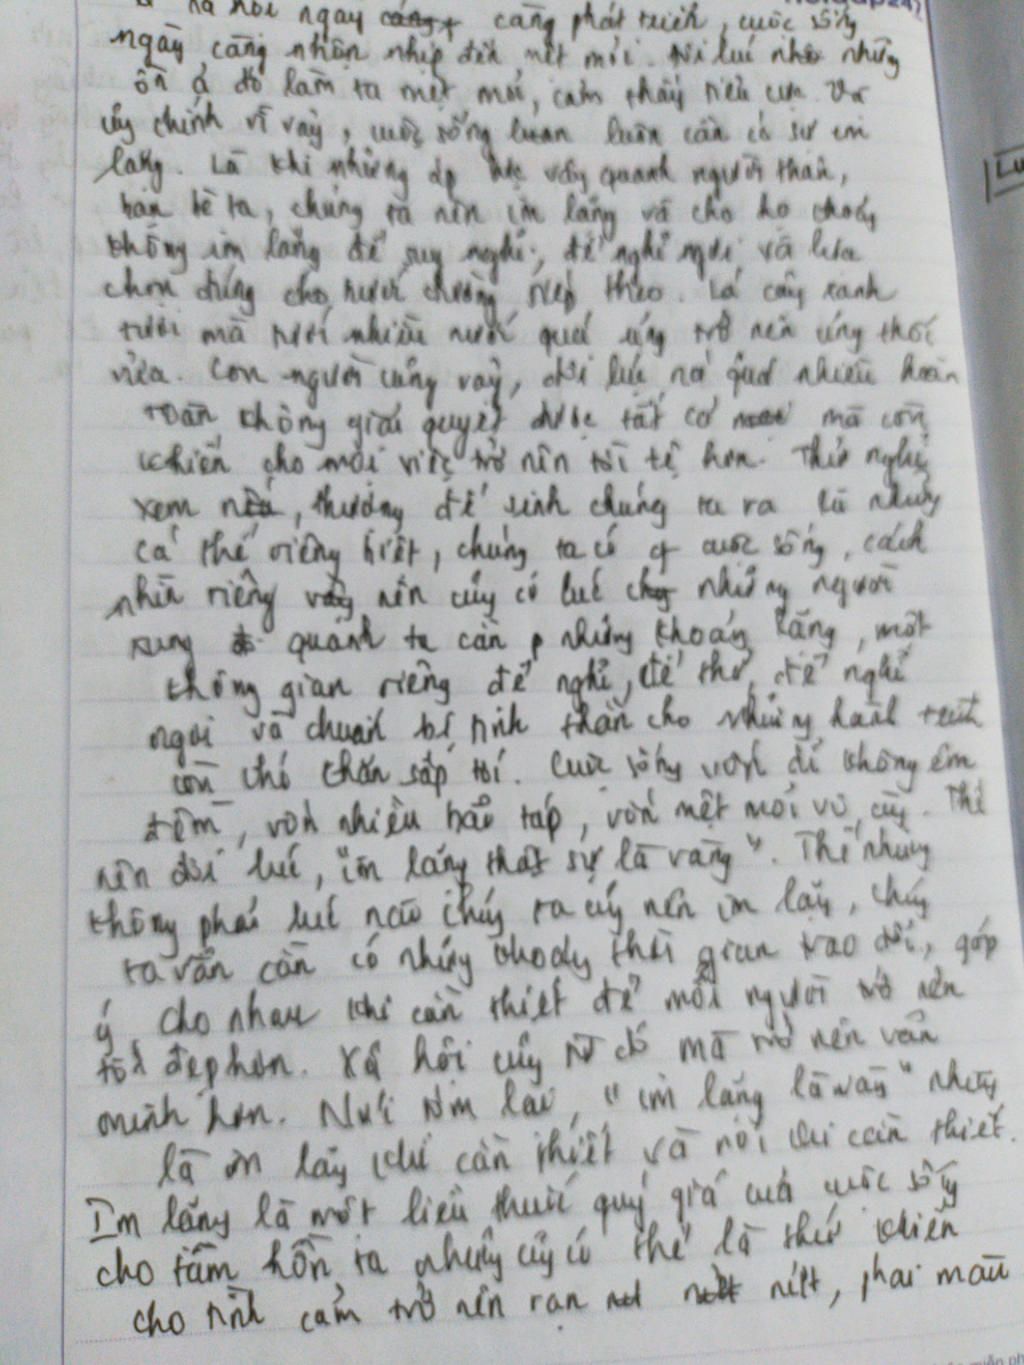 xã hội ngày càng phát triển, cuộc sống
ngày càng nhộn nhịp đến mệt mỏi. Đôi lúc những
ồn ã đó làm ta mệt mỏi, cảm thấy tiêu cực. Và
cũng chính vì vậy, cuộc sống luôn luôn cần có sự im
lặng. Là khi những áp lực vây quanh người thân,
bạn bè ta, chúng ta nên im lặng và cho họ khoảng
không im lặng để suy nghĩ, để nghỉ ngơi và lựa
chọn đúng cho bước đường tiếp theo. Lá cây xanh
tươi mà tưới nhiều nước quá cũng trở nên úng thối
nữa. Con người cũng vậy, đôi lúc nói quá nhiều hoàn
toàn không giải quyết được tất cả mà còn
khiến cho mọi việc trở nên tồi tệ hơn. Thử nghĩ
xem, thượng đế sinh chúng ta ra là những
cá thể riêng biệt, chúng ta có cuộc sống, cách
nhìn riêng nên cũng có lúc những người
xung quanh ta cần những khoảng lặng, một
không gian riêng để nghĩ, để thở, để nghỉ
ngơi và chuẩn bị tinh thần cho những hành trình
còn khó khăn sắp tới. Cuộc sống vốn dĩ không êm
đềm, vốn nhiều bão táp, vốn mệt mỏi vô cùng. Thế
nên đôi lúc, "im lặng thật sự là vàng". Thế nhưng
không phải lúc nào chúng ta cũng nên im lặng, chúng
ta vẫn cần có những khoảng thời gian trao đổi, góp
ý cho nhau khi cần thiết để mỗi người trở nên
tốt đẹp hơn. Xã hội cũng từ đó mà trở nên văn
minh hơn. Nói tóm lại, "im lặng là vàng" nhưng
là im lặng khi cần thiết và nói khi cần thiết.
Im lặng là một liều thuốc quý giá của cuộc sống
cho tâm hồn ta nhưng cũng có thể là thứ khiến
cho tình cảm trở nên rạn nứt, phai màu